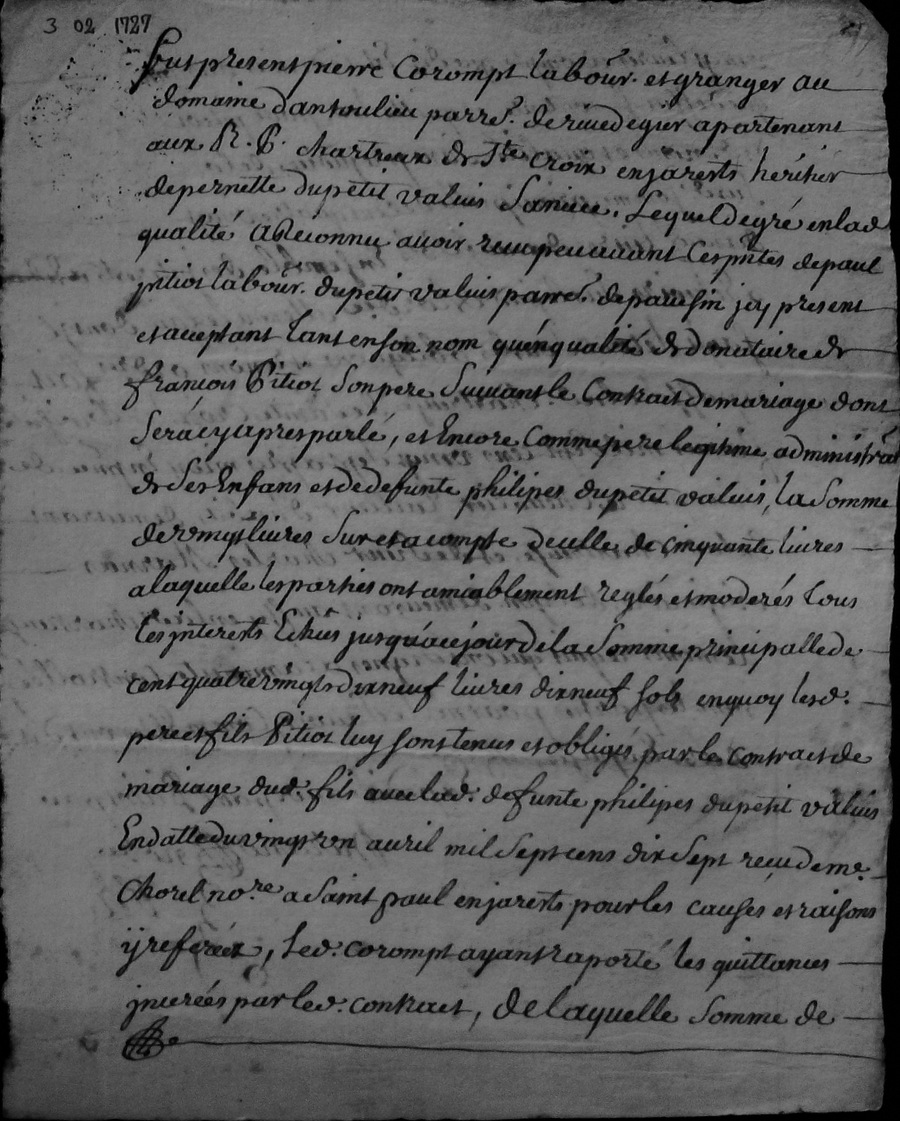 3 02 1727
fut present pierre Corompt labour. et granger au
domaine dansoulieu parre. de rivedegier apartenant
aux R. P. chartreux de Ste. croix en jarests heritier
de pernette du petit valuis sa niece, Lequel de gré en lad.
qualité a Reconnu avoir receu peu avant Ces pntes de paul
pitiot labour. du petit valuis parre. de pavesin icy present
et aceptant tant en son nom qu'en qualité de donataire de
françois Pitiot Son pere Suivant le Contract de mariage dont
Sera cy apres parlé, et Encore Comme pere legitime administra
de Ses Enfans et de defunte philipes du petit valuis, la Somme
de vingt livres Sur et a compte de celle de cinquante livres
a laquelle les parties ont amiablement reglés et moderés tous
les jnterests Echûs jusqu'a ce jour de la Somme principalle de
cent quatre vingts dix neuf livres dix neuf sols en quoy lesd.
pere et fils Pitiot luy sont tenus et obligés par le contract de
mariage dud. fils avec lad. defunte philipes du petit valuis
En datte du vingt un avril mil Sept cens dix Sept reçu de me.
Chorel nore. a Saint paul en jarests pour les causes et raisons
ÿ referées, Led. corompt ayant raporté les quittances
jncerées par led. contract, de laquelle Somme de